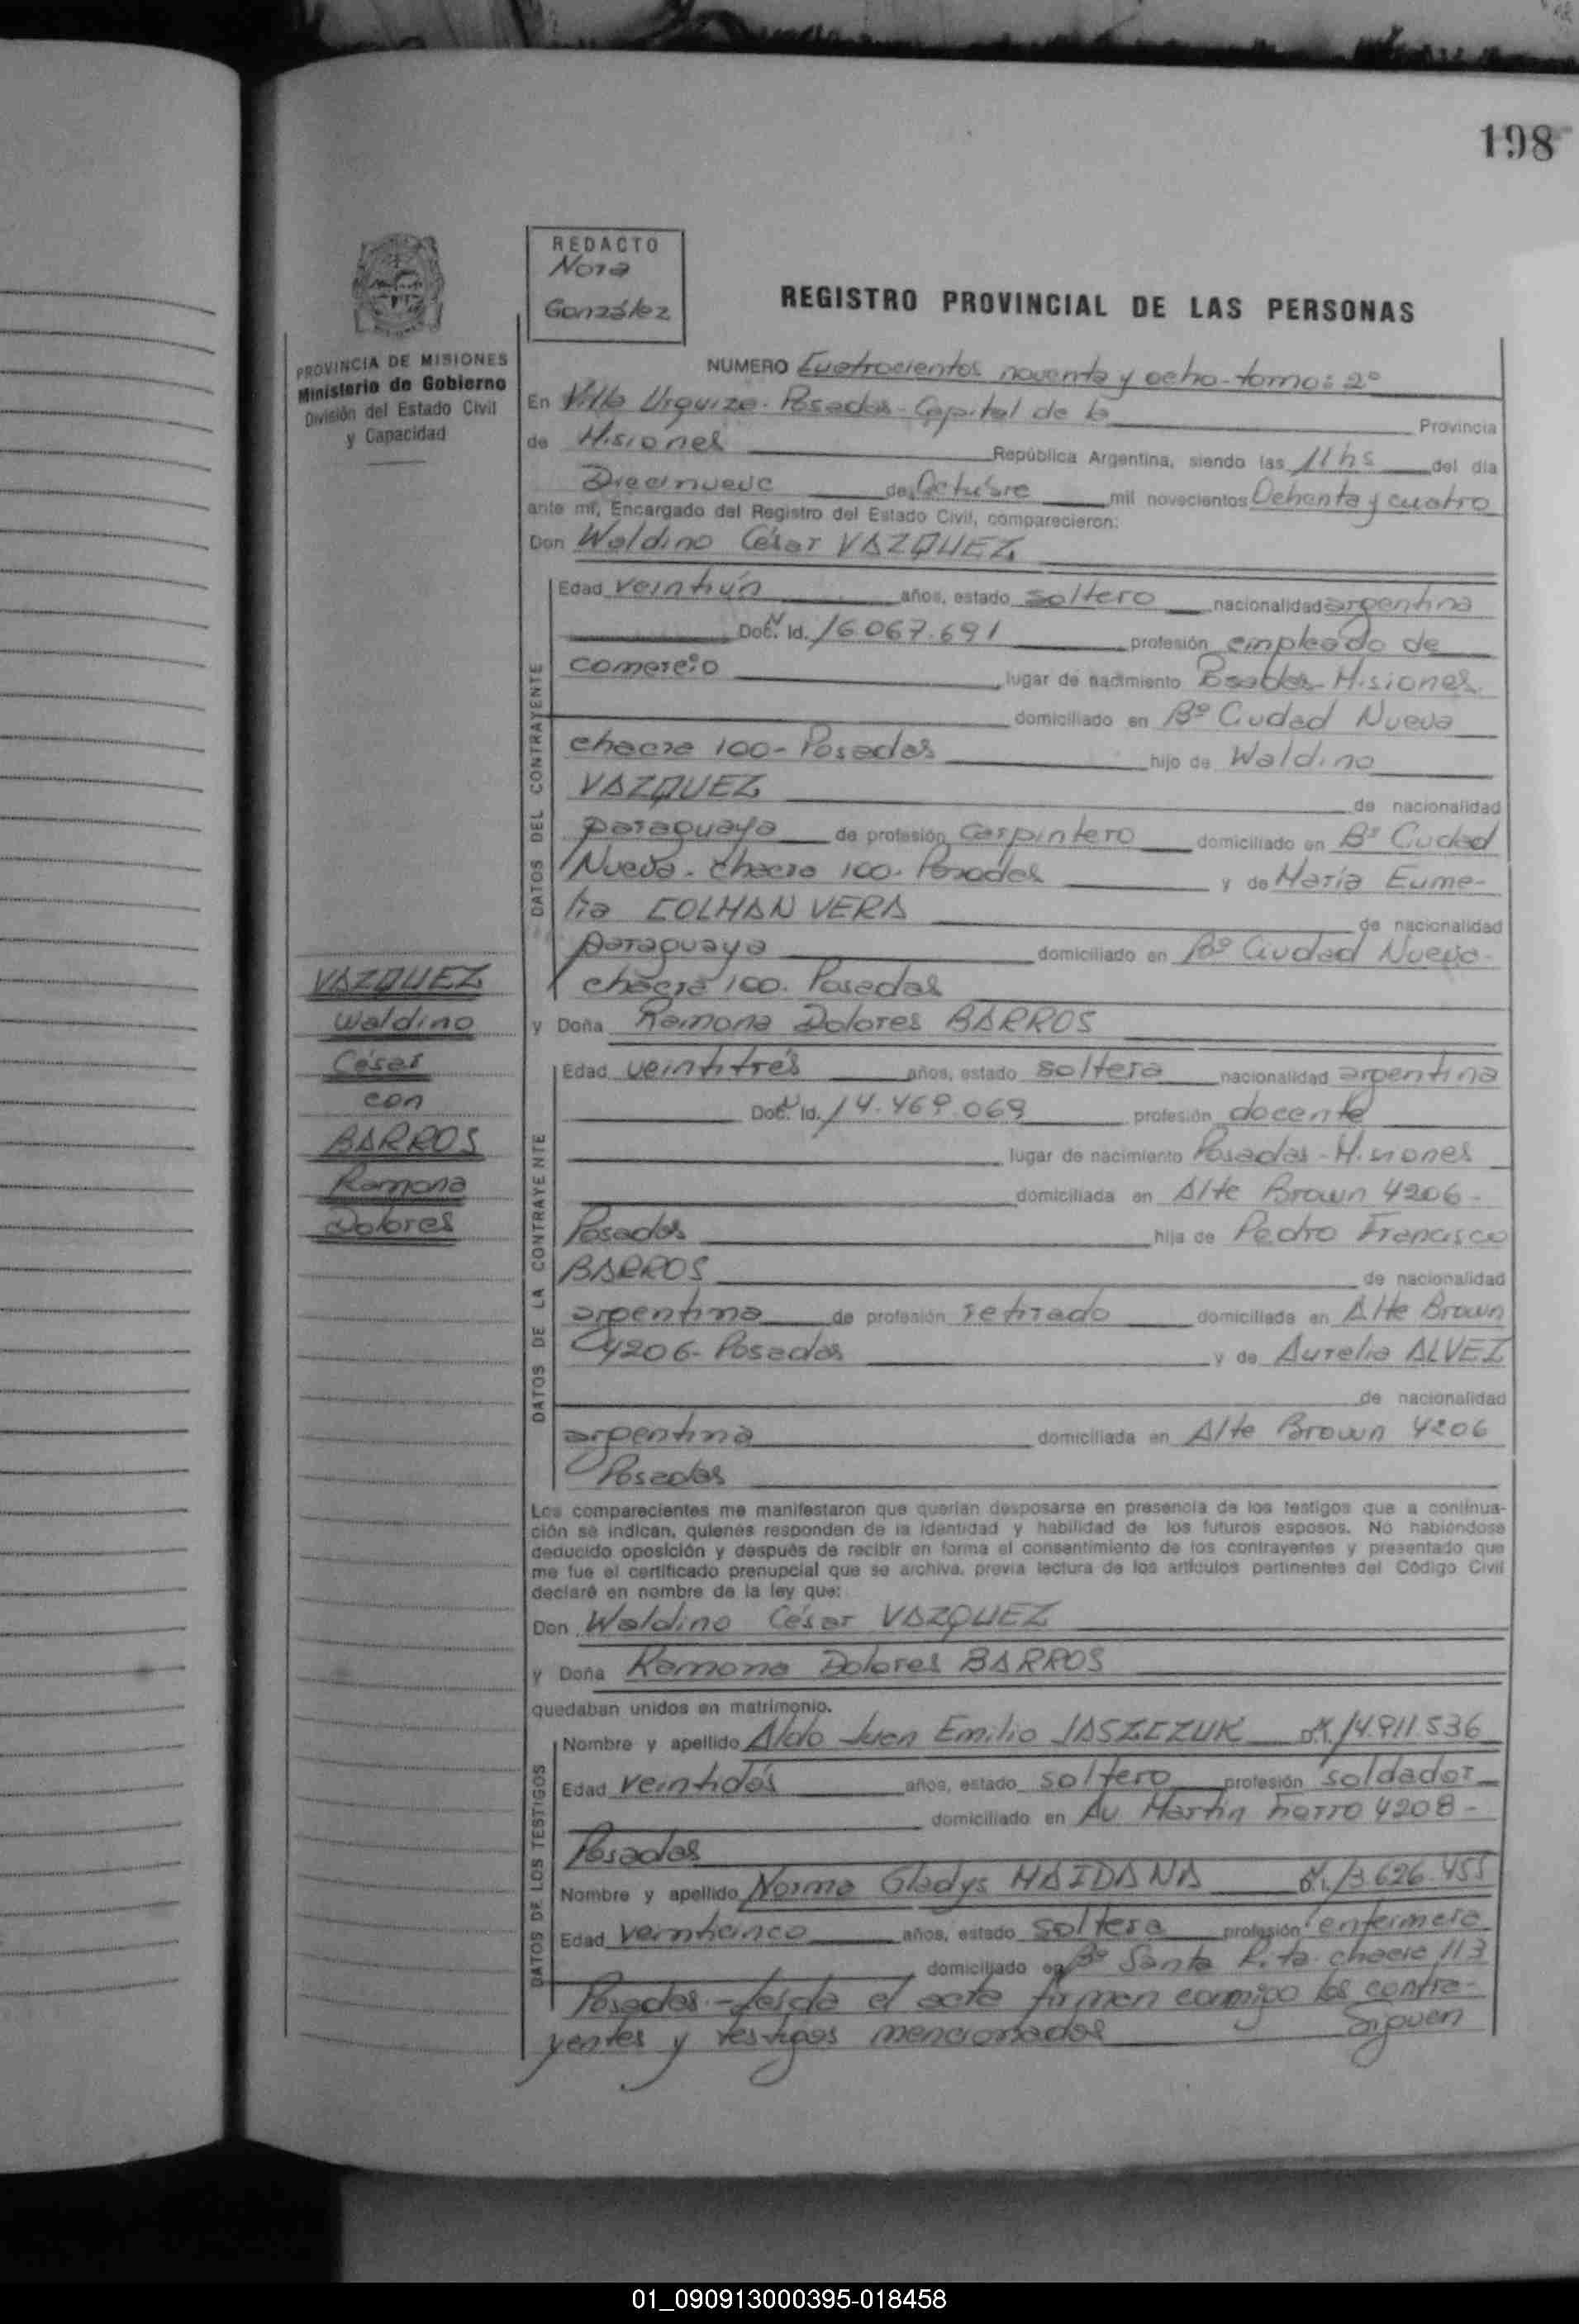 198
REDACTO
Nora
González
REGISTRO PROVINCIAL DE LAS PERSONAS
PROVINCIA DE MISIONES
Ministerio de Gobierno
División del Estado Civil
y Capacidad
NUMERO Cuatrocientos noventa y ocho-tomo: 2º
En Villa Urquiza-Posadas-Capital de la Provincia
de Misiones República Argentina, siendo las 11hs del día
Diecinueve de Octubre mil novecientos Ochenta y cuatro
ante mí, Encargado del Registro del Estado Civil, comparecieron:
Don Waldino César VAZQUEZ
DATOS DEL CONTRAYENTE
Edad veintiún años, estado soltero nacionalidad argentina
Doc. Id. 16.067.691 profesión empleado de
comercio lugar de nacimiento Posadas-Misiones
domiciliado en Bº Ciudad Nueva
chacra 100-Posadas hijo de Waldino
VAZQUEZ de nacionalidad
paraguaya de profesión carpintero domiciliado en Bº Ciudad
Nueva-chacra 100-Posadas y de María Eume-
lia COLMAN VERA de nacionalidad
paraguaya domiciliado en Bº Ciudad Nueva-
chacra 100. Posadas
y Doña Ramona Dolores BARROS
VAZQUEZ
Waldino
César
con
BARROS
Ramona
Dolores
DATOS DE LA CONTRAYENTE
Edad veintitrés años, estado soltera nacionalidad argentina
Doc. Id. 14.469.069 profesión docente
lugar de nacimiento Posadas-Misiones
domiciliada en Alte Brown 4206-
Posadas hija de Pedro Francisco
BARROS de nacionalidad
argentina de profesión retirado domiciliada en Alte Brown
4206-Posadas y de Aurelia ALVEZ
de nacionalidad
argentina domiciliada en Alte Brown 4206
Posadas
Los comparecientes me manifestaron que querían desposarse en presencia de los testigos que a continua-
ción se indican, quienes responden de la identidad y habilidad de los futuros esposos. No habiéndose
deducido oposición y después de recibir en forma el consentimiento de los contrayentes y presentado que
me fue el certificado prenupcial que se archiva, previa lectura de los artículos pertinentes del Código Civil
declaré en nombre de la ley que:
Don Waldino César VAZQUEZ
y Doña Ramona Dolores BARROS
quedaban unidos en matrimonio.
DATOS DE LOS TESTIGOS
Nombre y apellido Aldo Juan Emilio JASZCZUK 14.911.536
Edad veintidós años, estado soltero profesión soldador
domiciliado en Av Martín Fierro 4208-
Posadas
Nombre y apellido Norma Gladys MAIDANA 13.626.455
Edad veinticinco años, estado soltera profesión enfermera
domiciliado en Bº Santa Rita-chacra 113
Posadas-leída el acta firman conmigo los contra-
yentes y testigos mencionados Siguen
01_090913000395-018458